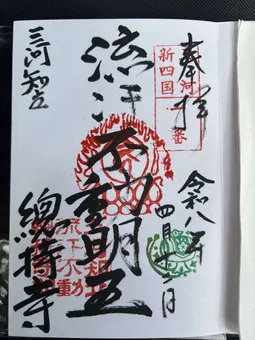 奉拝
新四国
令和八年
四月十二日
流汗不動明王
三河知立
總持寺